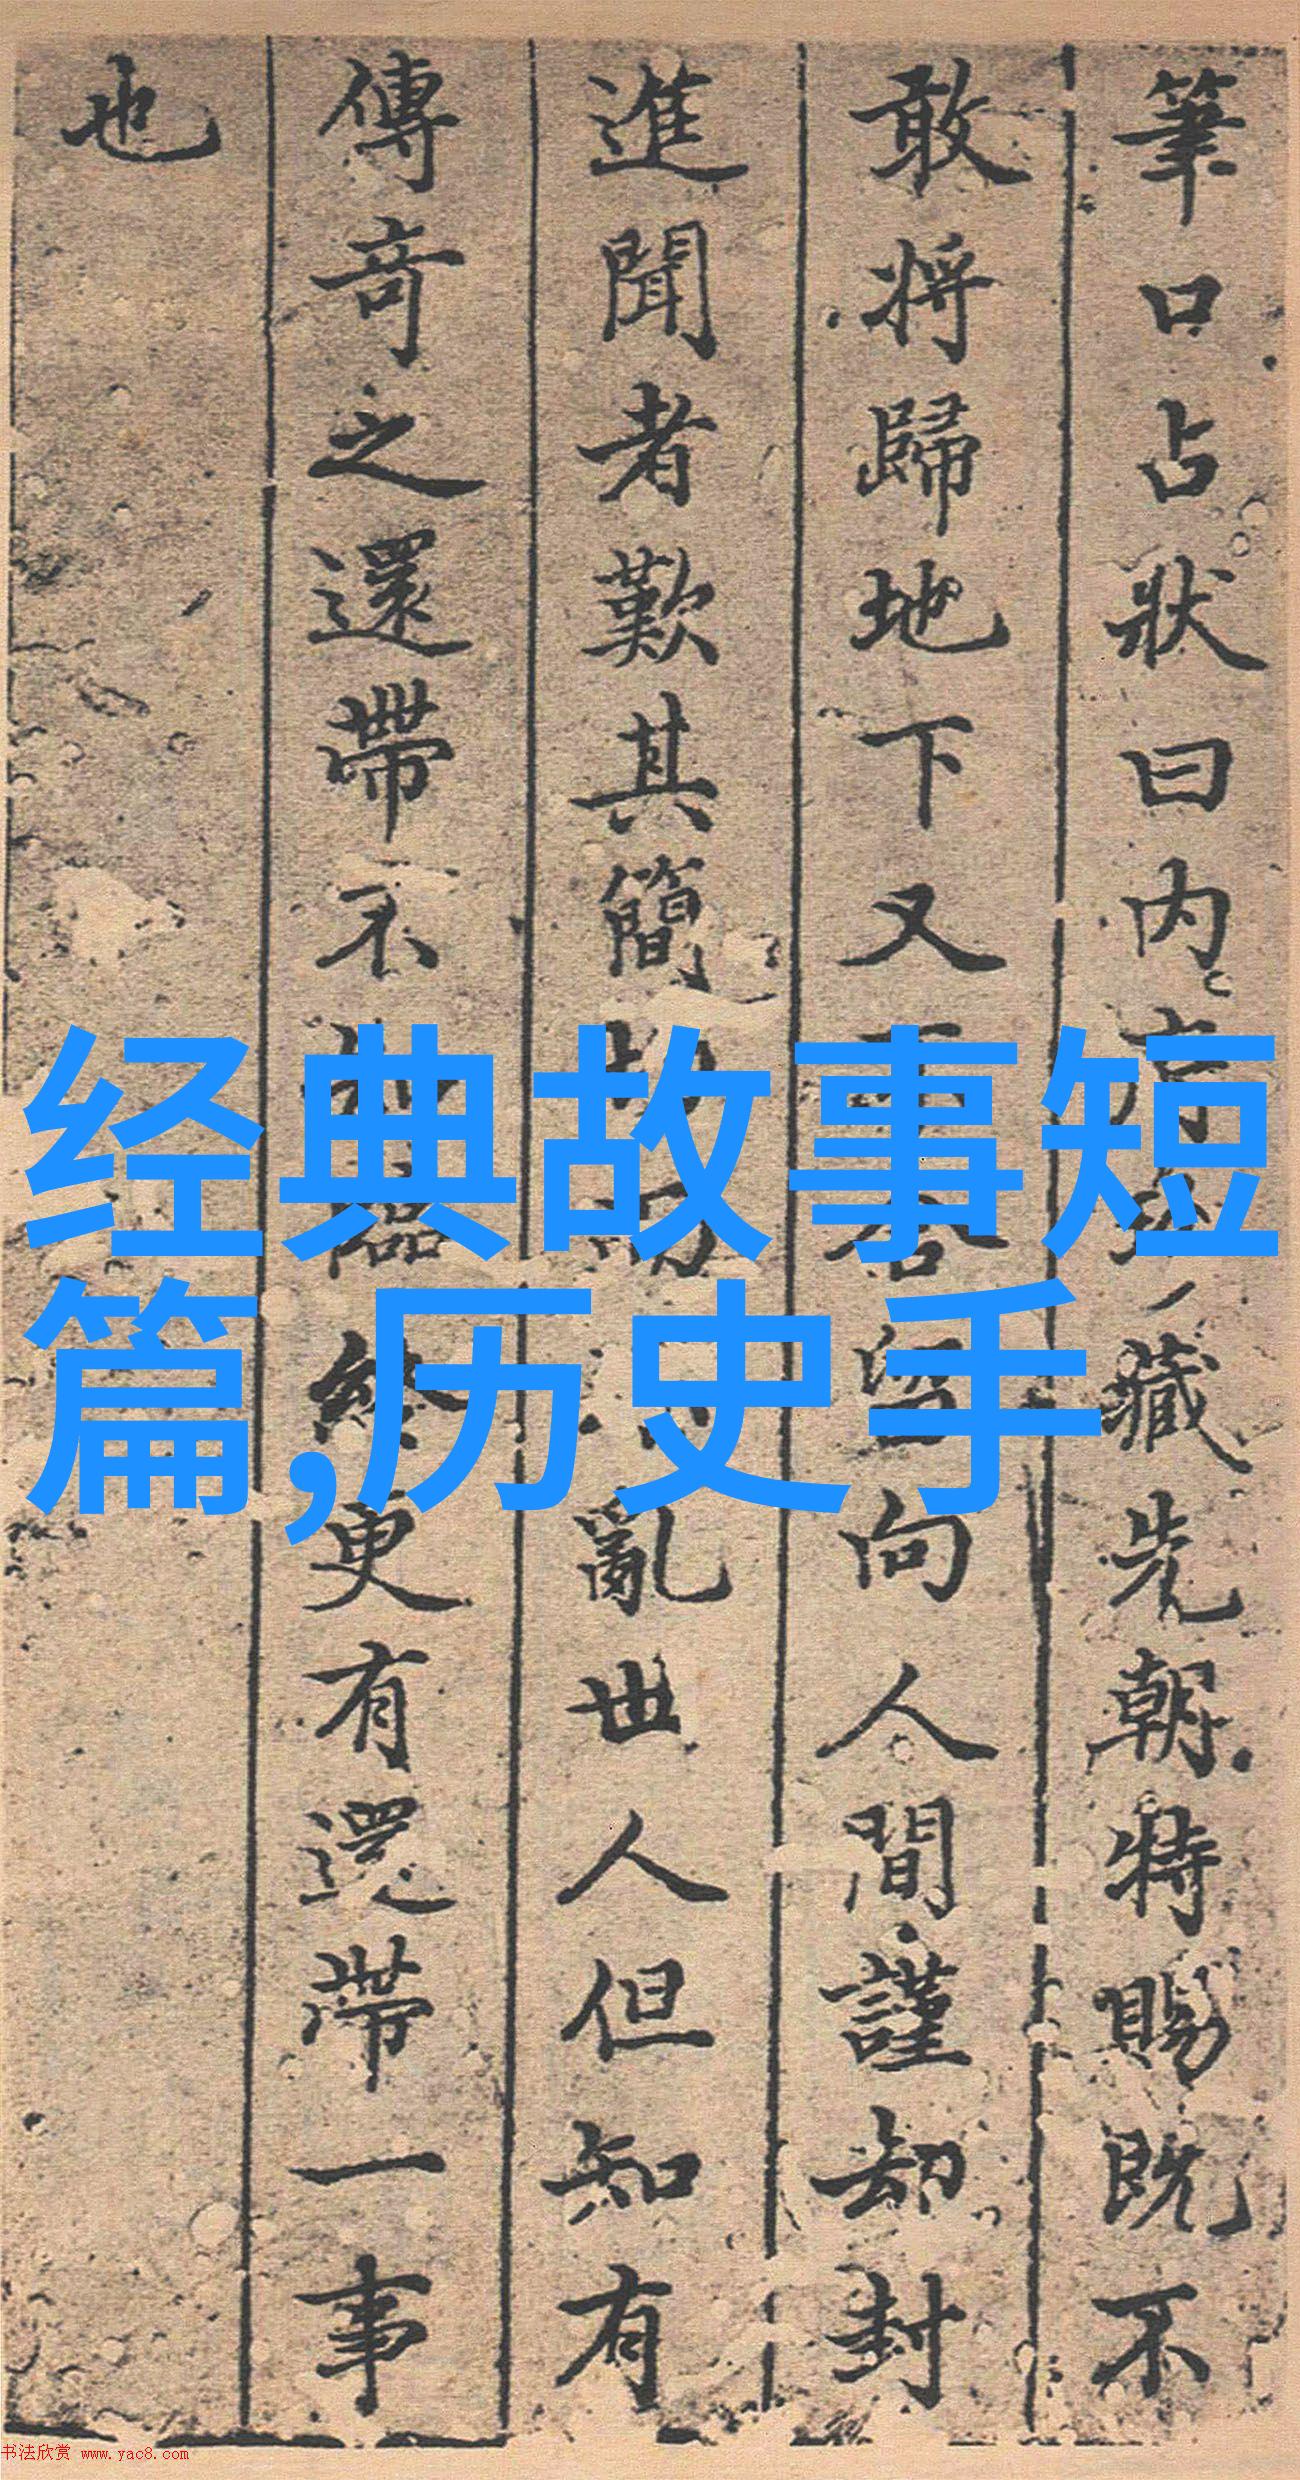 筆口占狀曰内藏先朝特賜既不
敢將歸地下又向人間謹却封
進聞者歎其簡亂世人但知有
傳奇之還帶不終更有還帶一事
也
经典故事短
篇,历史手
书法欣赏 www.yac8.com